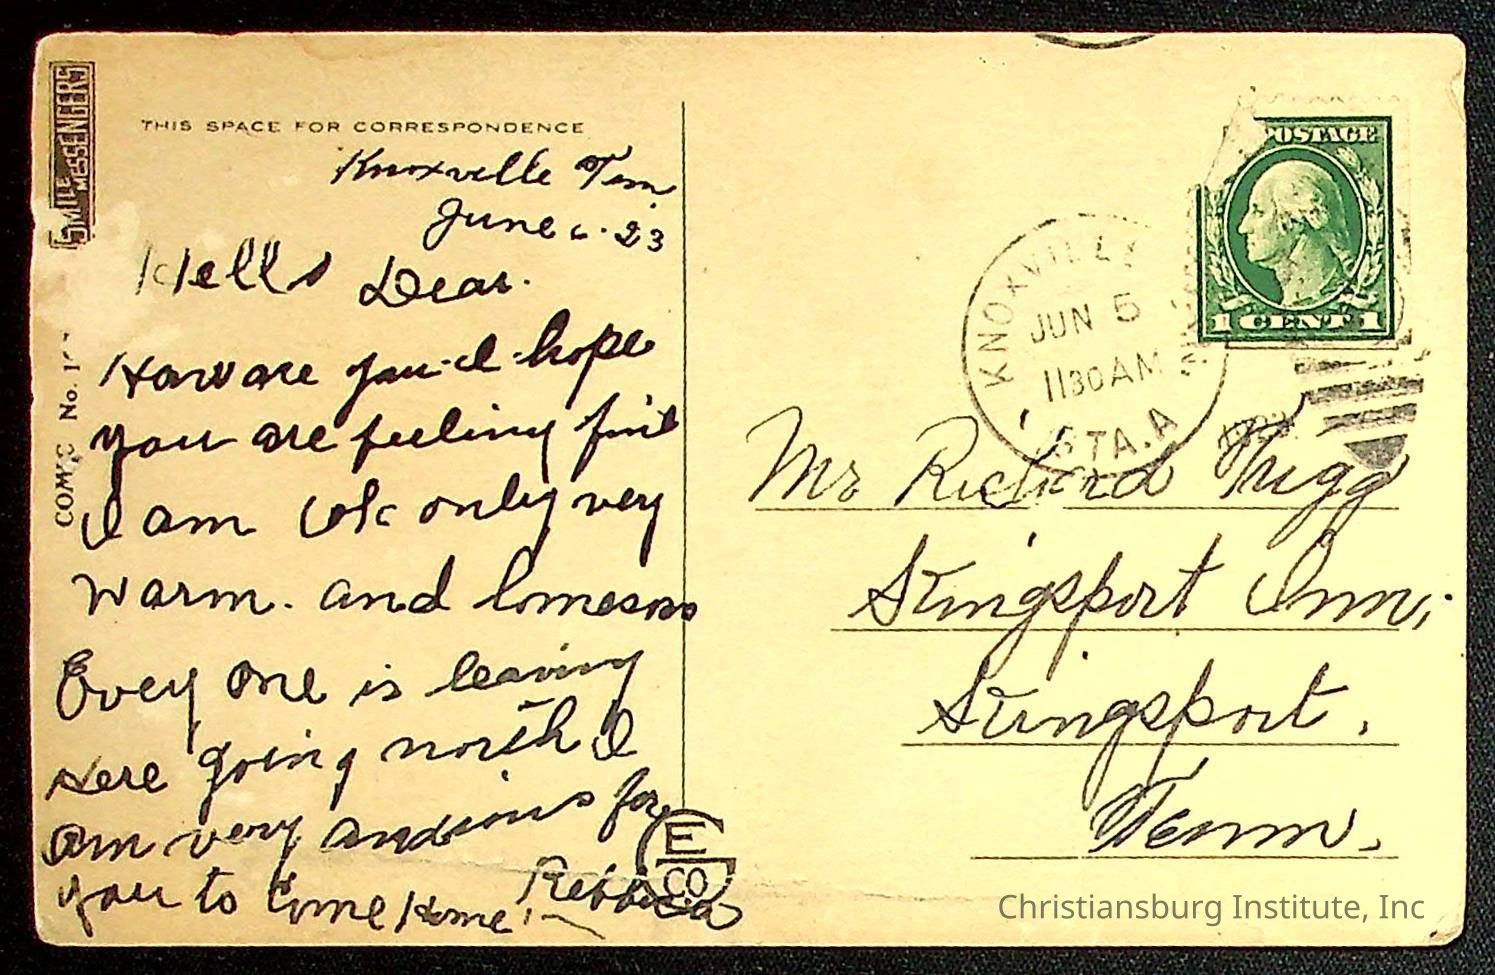 SMILE MESSENGERS
COMIC No. 1
THIS SPACE FOR CORRESPONDENCE
Knoxville Tenn
June 6. 23
Hello Dear.
How are you. I hope
you are feeling fine
I am ok only very
warm. and lonesom
Every one is leaving
Here going north I
am very anxious for
you to come Home.
Rebecca
E
CO
POSTAGE
1 CENT 1
KNOXVILLE
JUN 5
1130 AM
STA.A
Mr Richard Trigg
Kingsport Inn,
Kingsport.
Tenn.
Christiansburg Institute, Inc